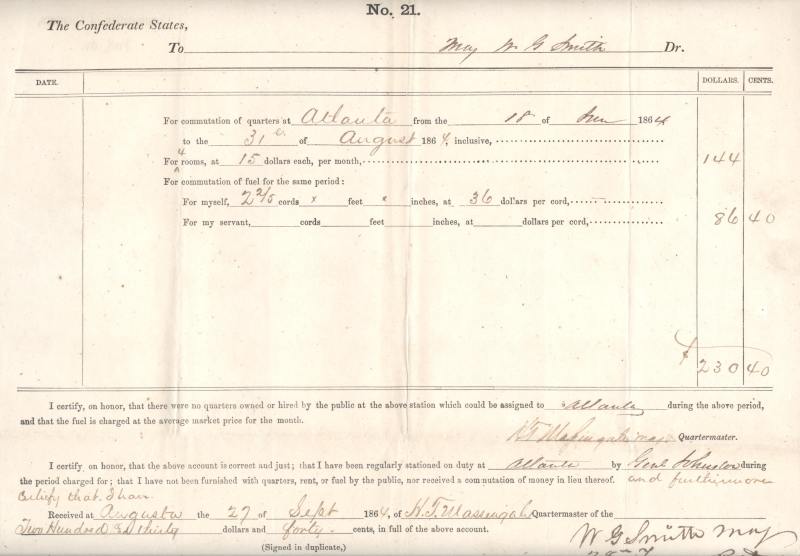 No. 21.
The Confederate States,
To Maj W G Smith Dr.
DATE. DOLLARS. CENTS.
For commutation of quarters at Atlanta from the 18 of June 1864
to the 31st of August 1864, inclusive,
For 4 rooms, at 15 dollars each, per month, 144
For commutation of fuel for the same period:
For myself, 2 2/5 cords x feet " inches, at 36 dollars per cord, 86 40
For my servant, cords feet inches, at dollars per cord,
$ 230 40
I certify, on honor, that there were no quarters owned or hired by the public at the above station which could be assigned to Atlanta during the above period,
and that the fuel is charged at the average market price for the month.
H T Massengale Maj Quartermaster.
I certify, on honor, that the above account is correct and just; that I have been regularly stationed on duty at Atlanta by Genl Johnston during
the period charged for; that I have not been furnished with quarters, rent, or fuel by the public, nor received a commutation of money in lieu thereof. and furthermore
certify that I han
Received at Augusta the 27 of Sept 1864, of H. T. Massengale Quartermaster of the
Two Hundred & thirty dollars and forty cents, in full of the above account.
W G Smith Maj
(Signed in duplicate,)